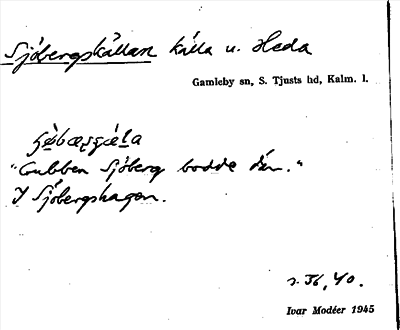 Sjöbergskällan källa u. Heda
Gamleby sn, S. Tjusts hd, Kalm. l.
"Gubben Sjöberg bodde där."
I Sjöbergshagen.
Ivar Modéer 1945